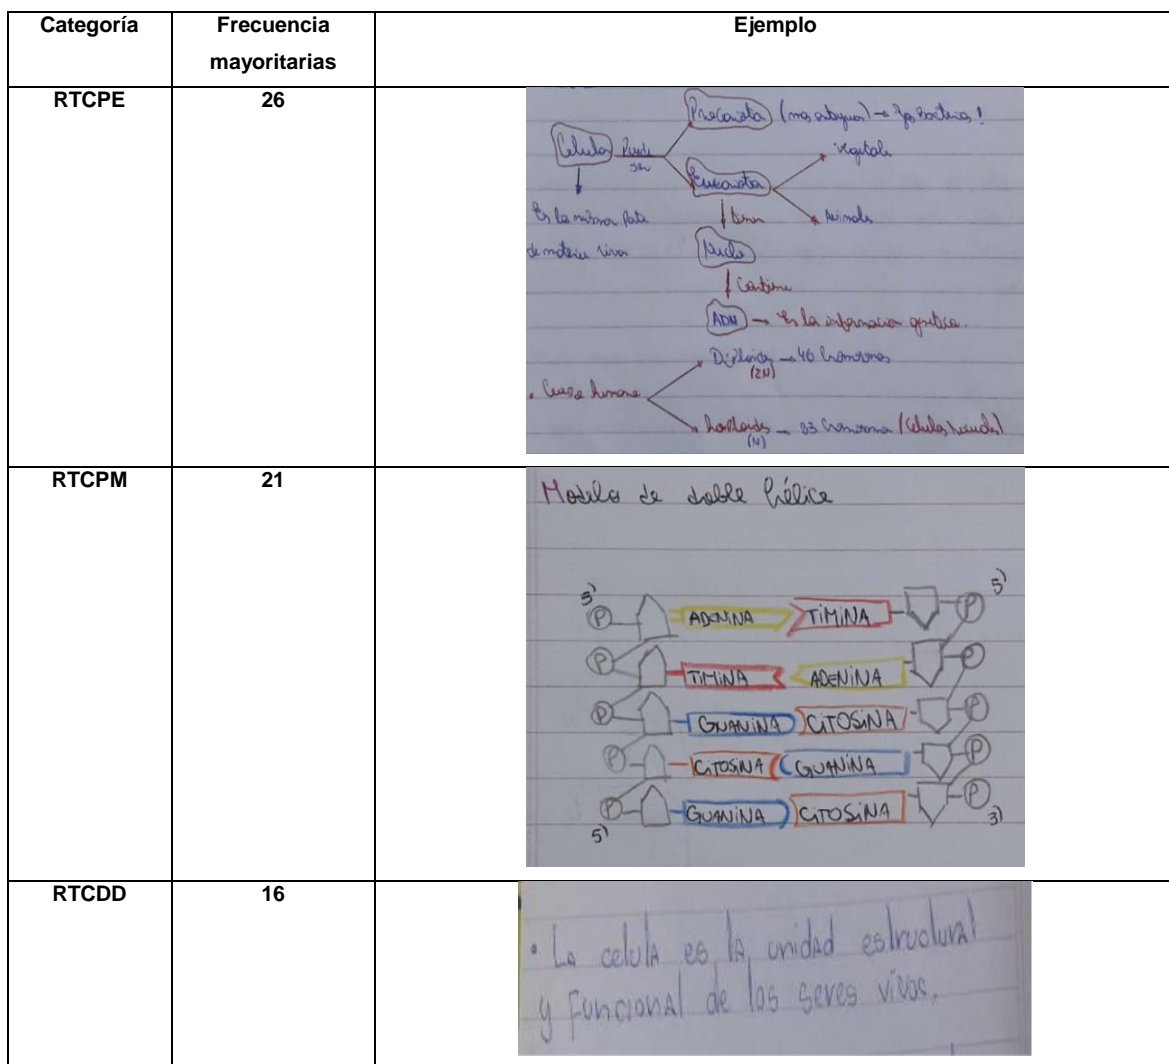 Categoría Frecuencia mayoritarias Ejemplo
RTCPE 26
Procariota (mas antigua) → las bacterias!
Celula Puede ser
vegetale
Eucariota
Es la misma Parte
de materia viva
tienen
Animales
Nucleo
Contiene
ADN → Es la informacion genetica.
Diploides → 46 Cromosomas
(2N)
haploides → 23 Cromosoma
(N)
RTCPM 21
Modelo de doble hélice
3' 5'
P ADENINA TIMINA P
P TIMINA ADENINA P
P GUANINA CITOSINA P
P CITOSINA GUANINA P
P GUANINA CITOSINA P
5' 3'
RTCDD 16
• La celula es la unidad estructural
y Funcional de los seres vivos.